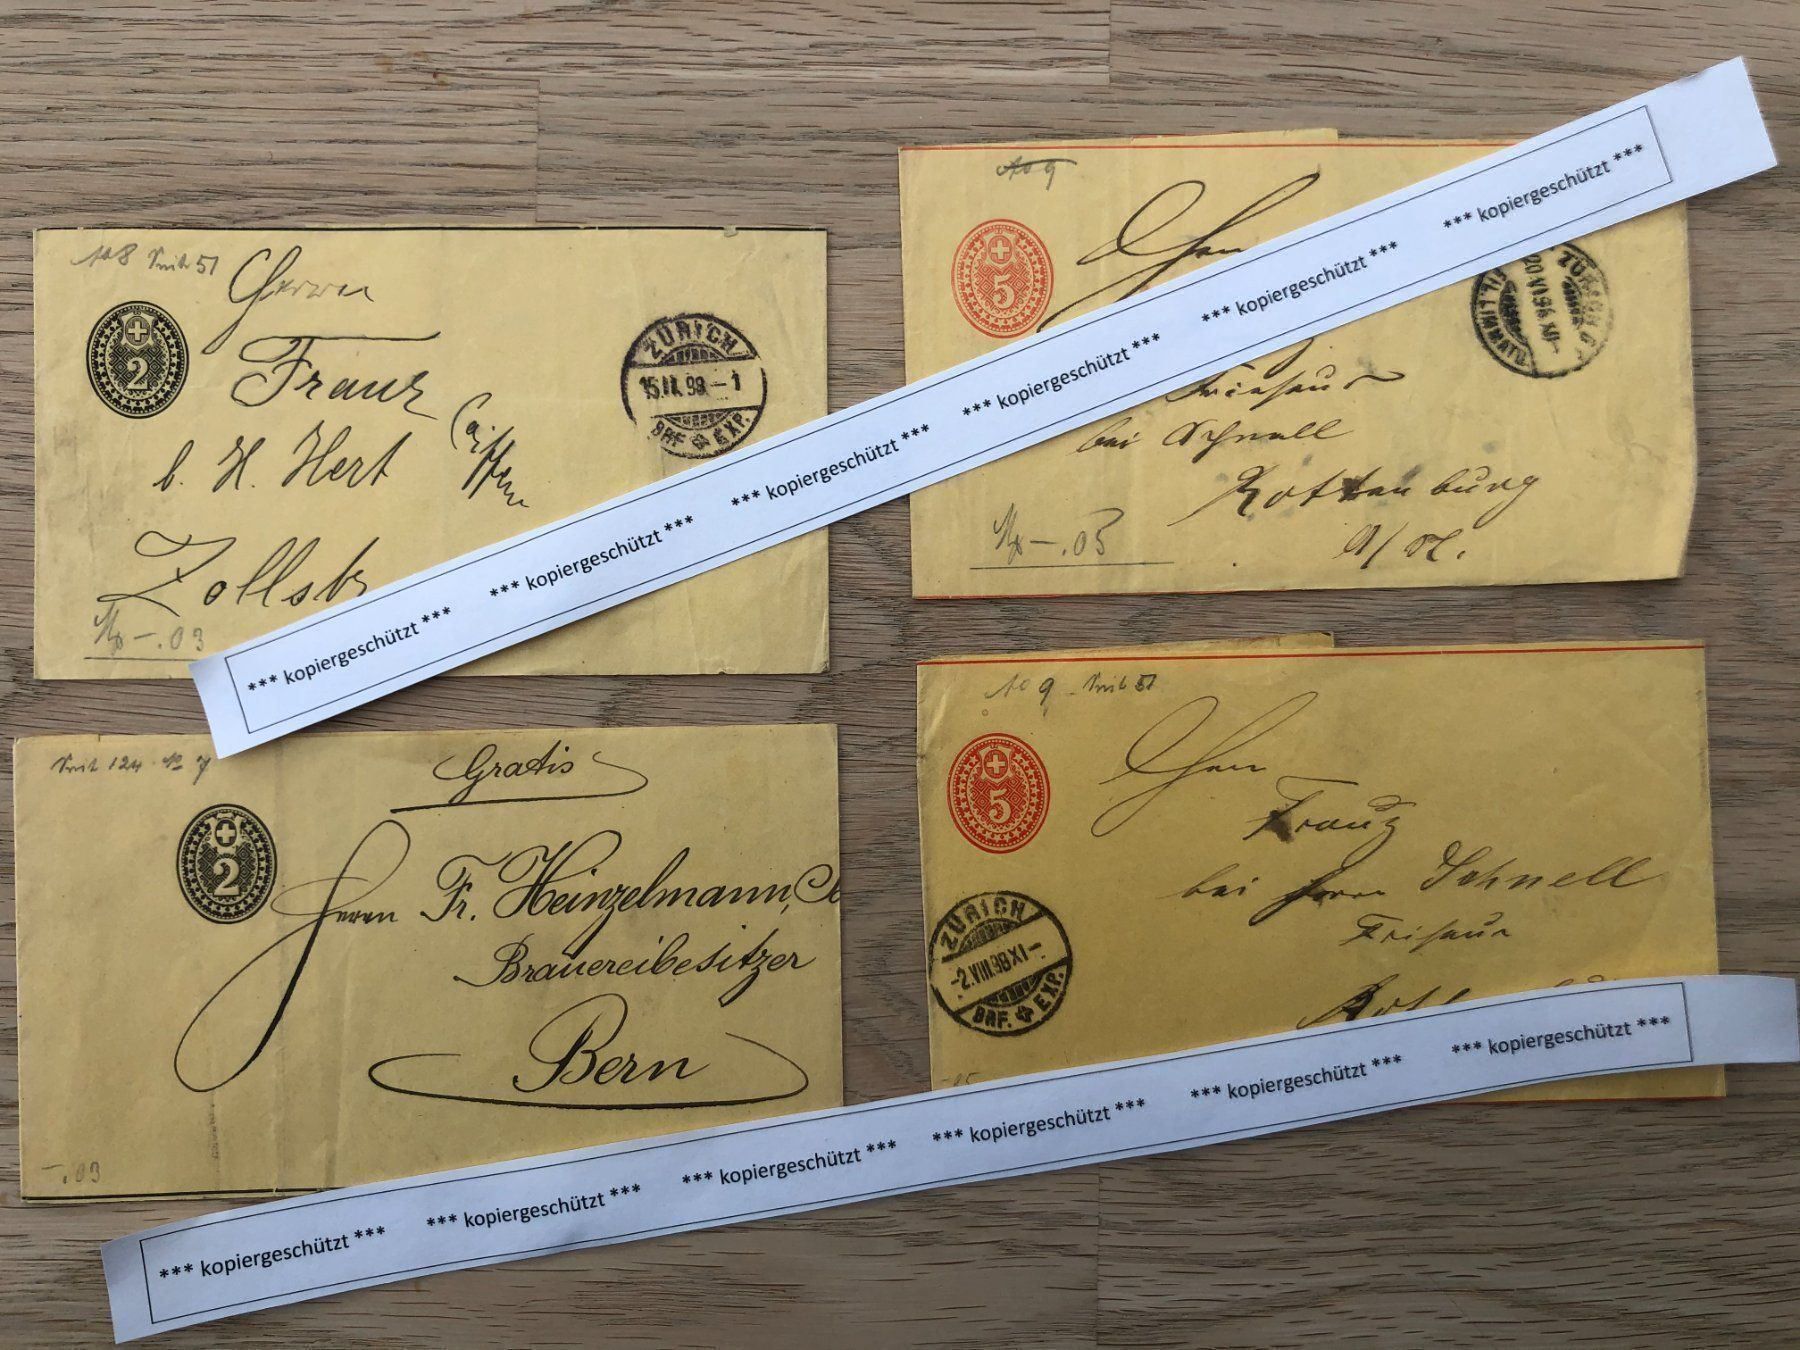 No 8
51
Herrn
Franz
b. H. Hert
Zollsbr
-.03
2
ZÜRICH
15.II.99.-1
BRF. EXP.
No 9
Herrn
5
ZÜRICH
20 VI 96 XI-
Friseur
bei Schnell
Rottenburg
a/N.
-.05
*** kopiergeschützt *** *** kopiergeschützt *** *** kopiergeschützt *** *** kopiergeschützt *** *** kopiergeschützt *** *** kopiergeschützt ***
124 No 7
Gratis
2
Herrn Fr. Heinzelmann,
Brauereibesitzer
Bern
-.03
No 9 51
5
Herrn
Franz
bei Herrn Schnell
Friseur
ZÜRICH
-2.VIII.98 XI-
BRF. EXP.
*** kopiergeschützt *** *** kopiergeschützt *** *** kopiergeschützt *** *** kopiergeschützt *** *** kopiergeschützt *** *** kopiergeschützt ***